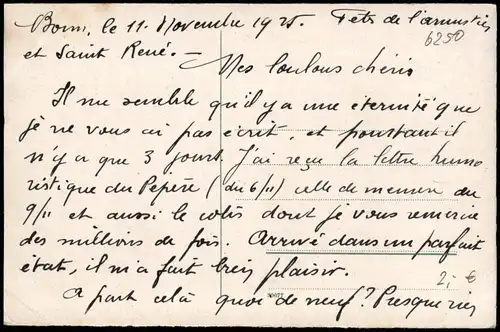 Bonn, le 11. Novembre 1925. Fête de l'armistice
6250
et Saint René. —
Mes loulous chéris
Il me semble qu'il y a une éternité que
je ne vous ai pas écrit, et pourtant il
n'y a que 3 jours. J'ai reçu la lettre humo
ristique du Pépère (du 6/11) celle de memem du
9/11 et aussi le colis dont je vous remercie
des millions de fois. Arrivé dans un parfait
état, il m'a fait bien plaisir.
2,- €
A part celà quoi de neuf? Presque rien